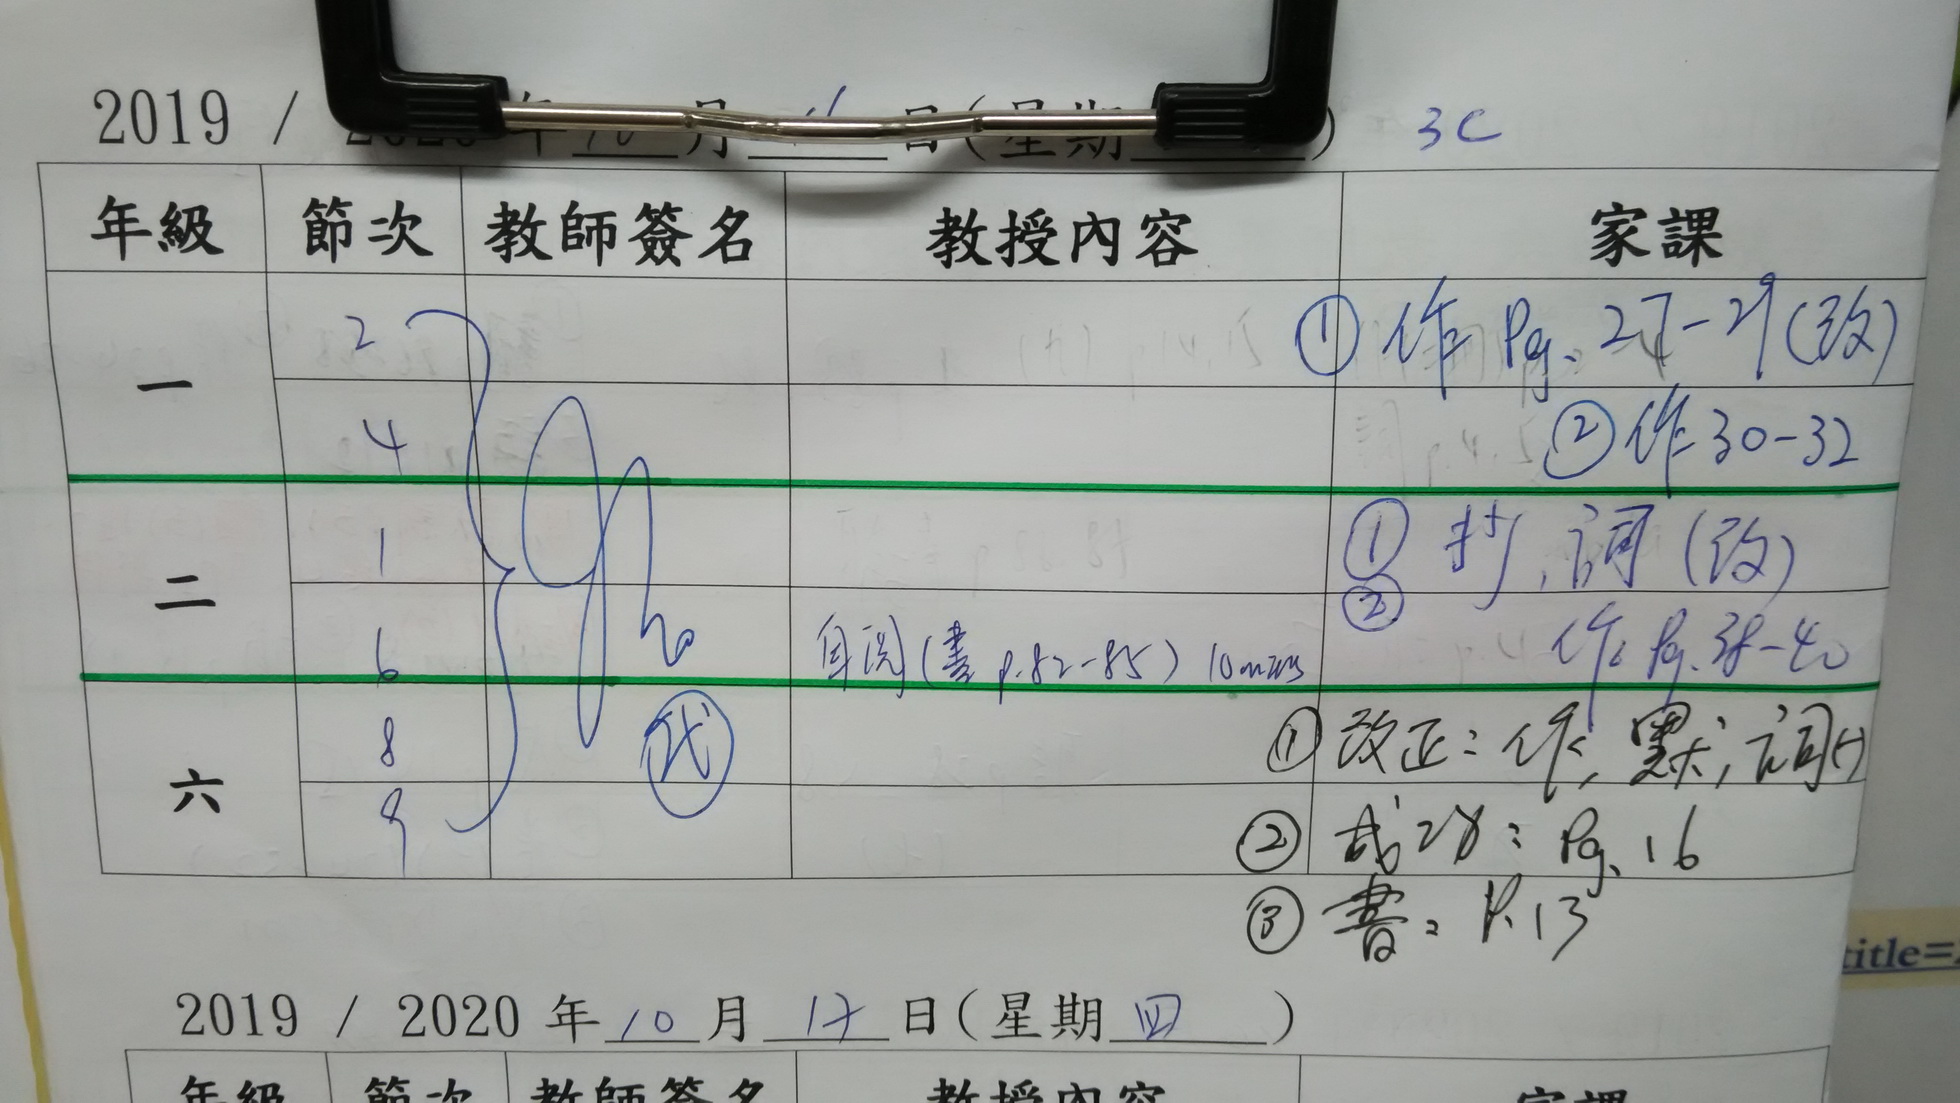 2019 / 2020 年 10 月 日(星期 ) 3C
年級 節次 教師簽名 教授內容 家課
一 2 ① 作 Pg. 27-29 (改)
4 ② 作 30-32
二 1 ① 抄, 詞 (改)
6 自閱 (書 p.82-85) 10mins ② 作: Pg. 38-40
六 8 代 ① 改正: 作, 默, 詞
9 ② : Pg. 16
③ 書: P.13
2019 / 2020 年 10 月 17 日(星期 四 )
年級 節次 教師簽名 教授內容 家課
title=